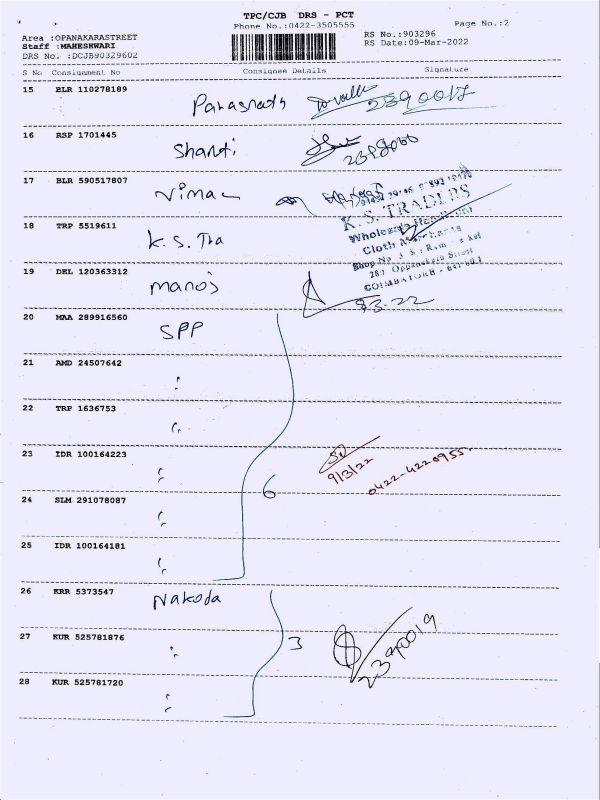 TPC/CJB DRS - PCT
Phone No.:0422-3505555
Page No.:2
Area :OPANAKARASTREET
Staff :MAHESHWARI
DRS No. :DCJB90329602
RS No.:903296
RS Date:09-Mar-2022
S No Consignment No Consignee Details Signature
15 BLR 110278189
Parasnath 2390017
16 RSP 1701445
Shanti
17 BLR 590517807
Vimal
K.S. TRADERS
Wholesale
18 TRP 5519611
K.S. Tra
Cloth
Shop No
Oppanakara Street
19 DEL 120363312
COIMBATORE - 641 001
Manoj
20 MAA 289916560
SPP
21 AMD 24507642
"
22 TRP 1636753
"
23 IDR 100164223
"
6
9/3/22
0422-4220955
24 SLM 291078087
"
25 IDR 100164181
"
26 KRR 5373547
Nakoda
27 KUR 525781876
"
3
2390019
28 KUR 525781720
"